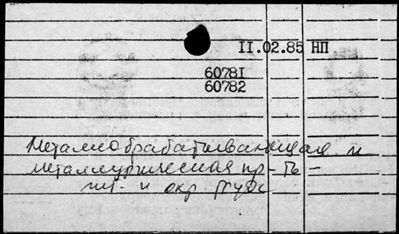 II.02.85 НП
60781
60782
Металлообрабатывающая и
металлургическая пр-ть -
гиг. и охр. труда